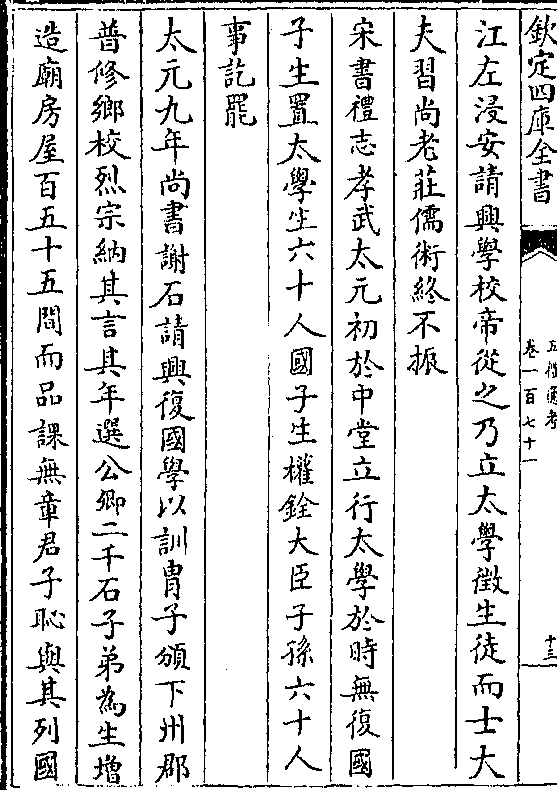 欽定四庫全書
五禮通考
卷一百七十一
十三
江左浸安請興學校帝從之乃立太學徵生徒而士大
夫習尚老莊儒術終不振
宋書禮志孝武太元初於中堂立行太學於時無復國
子生置太學生六十人國子生權銓大臣子孫六十人
事訖罷
太元九年尚書謝石請興復國學以訓胄子頒下州郡
普修鄉校烈宗納其言其年選公卿二千石子弟為生增
造廟房屋百五十五間而品課無章君子恥與其列國